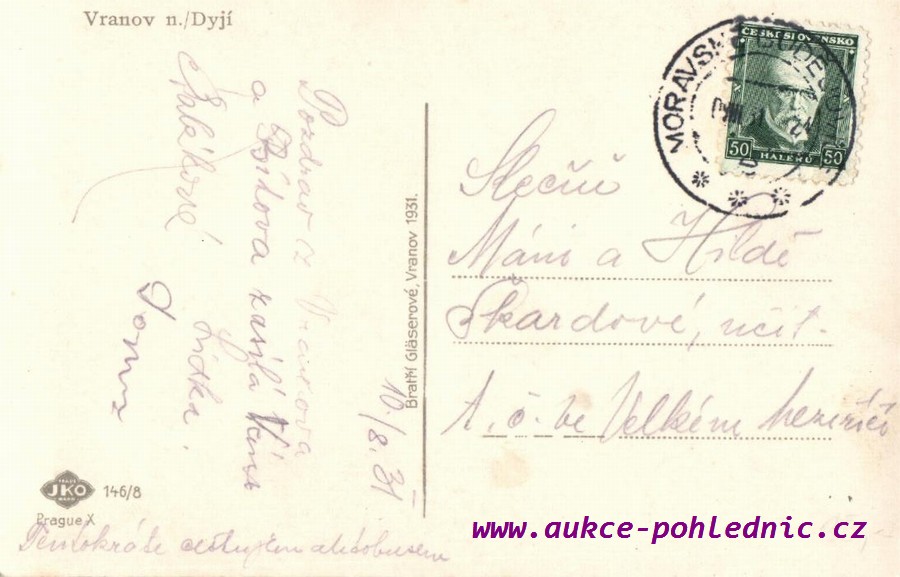 Vranov n./Dyjí
Pozdrav z Vranova
a Bítova zasílá Vám
Lidka
10/8. 31
Bratří Gläserové, Vranov 1931.
JKO
146/8
Prague X
Tentokráte cestujem autobusem
MORAVSKÉ BUDĚJOVICE
ČESKOSLOVENSKO
50 HALÉŘŮ 50
Slečně
Máni a Hildě
Škardové, učit.
t. č. ve Velkém Meziříčí
www.aukce-pohlednic.cz